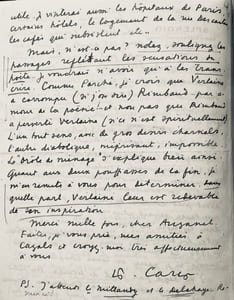 utile. Je visiterai aussi les hôpitaux de Paris
certains hôtels, le logement de la rue
les cafés qui subsistent etc...
Mais, n'est-ce pas ? notez, soulignez les
passages reflétant les sensations du
poète. Je voudrais n'avoir qu'à les trans
crire. Comme Porché, je crois que Verlaine
a corrompu (si j'ose dire) Rimbaud par a-
mour de la poésie et non pas que Rimbaud
a perverti Verlaine (si ce n'est spirituellement)
L'un tout sens, avec de gros désirs charnels,
l'autre diabolique, méprisant, impossible.
Le drôle de ménage s'explique bien ainsi
Quant aux deux pouffiasses de la fin, je
m'en remets à vous pour déterminer dans
quelle part, Verlaine leur est redevable
de son inspiration.
Merci mille fois, cher
Faites, je vous prie, mes amitiés à
Cazals et croyez moi très affectueusement
à vous
Carco
P.S. J'attends le et le Delahaye.